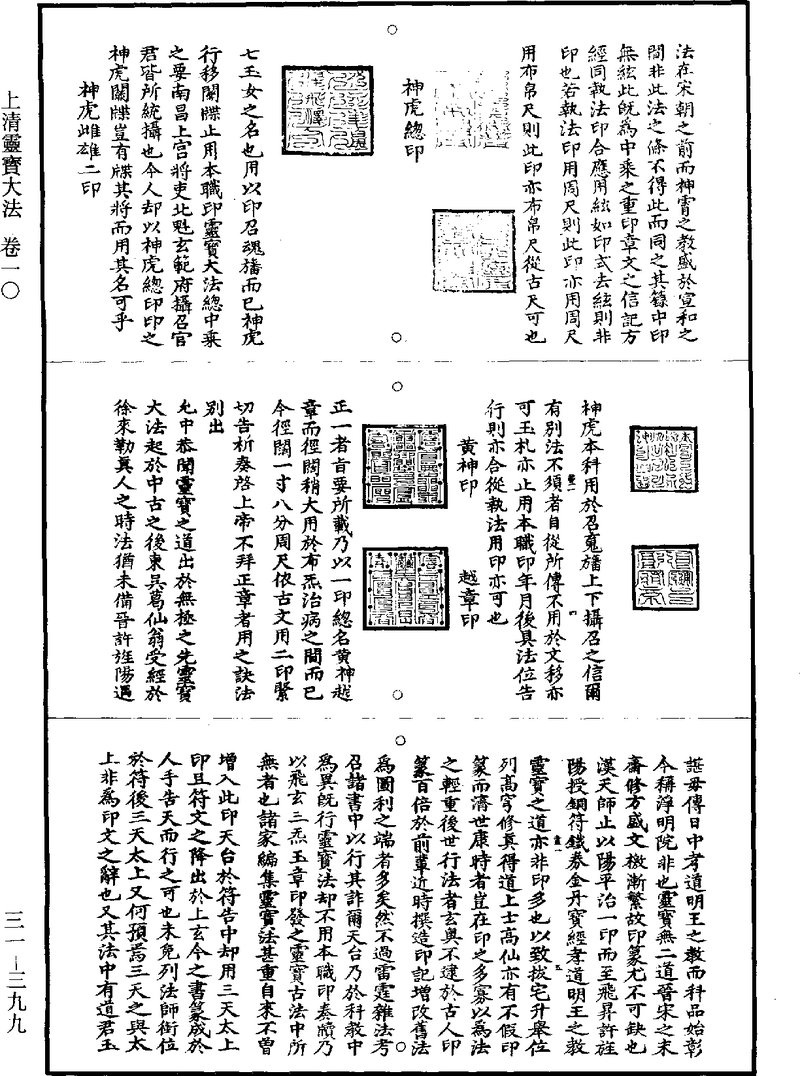 上清靈寶大法　卷一〇
三一—三九九
法在宋朝之前而神霄之教盛於宣和之
間非此法之條不得此而同之其篆中印
無絃此既為中乘之重印章文之信記方
經同執法印合應用絃如印式去絃則非
印也若執法印用周尺則此印亦用周尺
用布帛尺則此印亦布帛尺從古尺可也
神虎總印
七玉女之名也用以印召魂旛而已神虎
行移關牒止用本職印靈寶大法總中乘
之要南昌上宮將吏北魁玄範府攝召官
君皆所統攝也今人却以神虎總印印之
神虎關牒豈有牒其將而用其名可乎
神虎雌雄二印
神虎本科用於召䰟旛上下攝召之信爾
有別法不須者自從所傳不用於文移亦
可玉札亦止用本職印年月後具法位告
行則亦合從執法用印亦可也
黃神印
越章印
正一者旨要所載乃以一印總名黃神越
章而徑闊稍大用於布炁治病之間而已
今徑闊一寸八分周尺依古文用二印緊
切告析奏啓上帝不拜正章者用之訣法
別出
允中恭聞靈寶之道出於無極之先靈寶
大法起於中古之後東吳葛仙翁受經於
徐來勒真人之時法猶未備晉許旌陽遇
諶母傳日中孝道明王之教而科品始彰
今稱淨明院非也靈寶無二道晉宋之末
齋修方盛文檄漸繁故印篆尤不可缺也
漢天師止以陽平治一印而至飛昇許旌
陽授銅符鐵券金丹寶經孝道明王之教
靈寶之道亦非印多也以致拔宅升舉位
列高穹修真得道上士高仙亦有不假印
篆而濟世康時者豈在印之多寡以為法
之輕重後世行法者玄奧不逮於古人印
篆百倍於前輩近時撰造印記增改舊法
為圖利之端者多矣然不過雷霆雜法考
召諸書中以行其詐爾天台乃於科教中
為異既行靈寶法却不用本職印奏牘乃
以飛玄三炁玉章印發之靈寶古法中所
無者也諸家編集靈寶法甚重自來不曾
增入此印天台於符告中却用三天太上
印且符文之降出於上玄今之書篆成於
人手告天而行之可也未免列法師銜位
於符後三天太上又何預焉三天之與太
上非為印文之辭也又其法中有道君玉